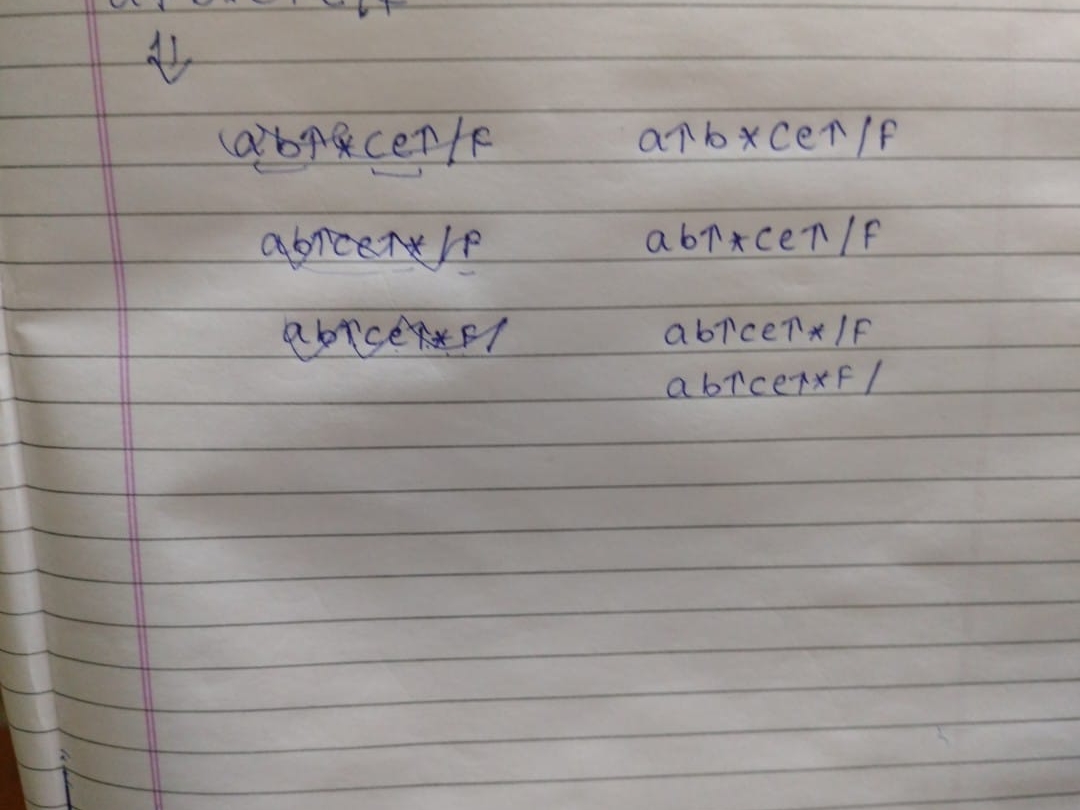 ab↑*ce↑/F a↑b*ce↑/F
ab↑ce↑*/F ab↑*ce↑/F
ab↑ce↑*F/ ab↑ce↑*/F
ab↑ce↑*F/